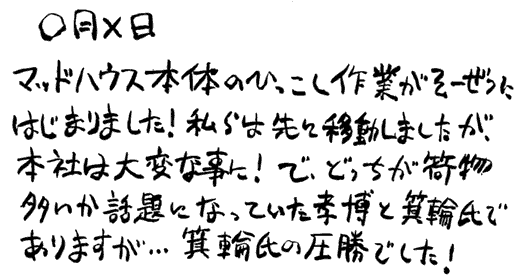 〇月×日
マッドハウス本体のひっこし作業がそーぜつに
はじまりました!私らは先に移動しましたが、
本社は大変な事に!で、どっちが荷物
多いか話題になっていた孝博と箕輪氏で
ありますが…箕輪氏の圧勝でした!